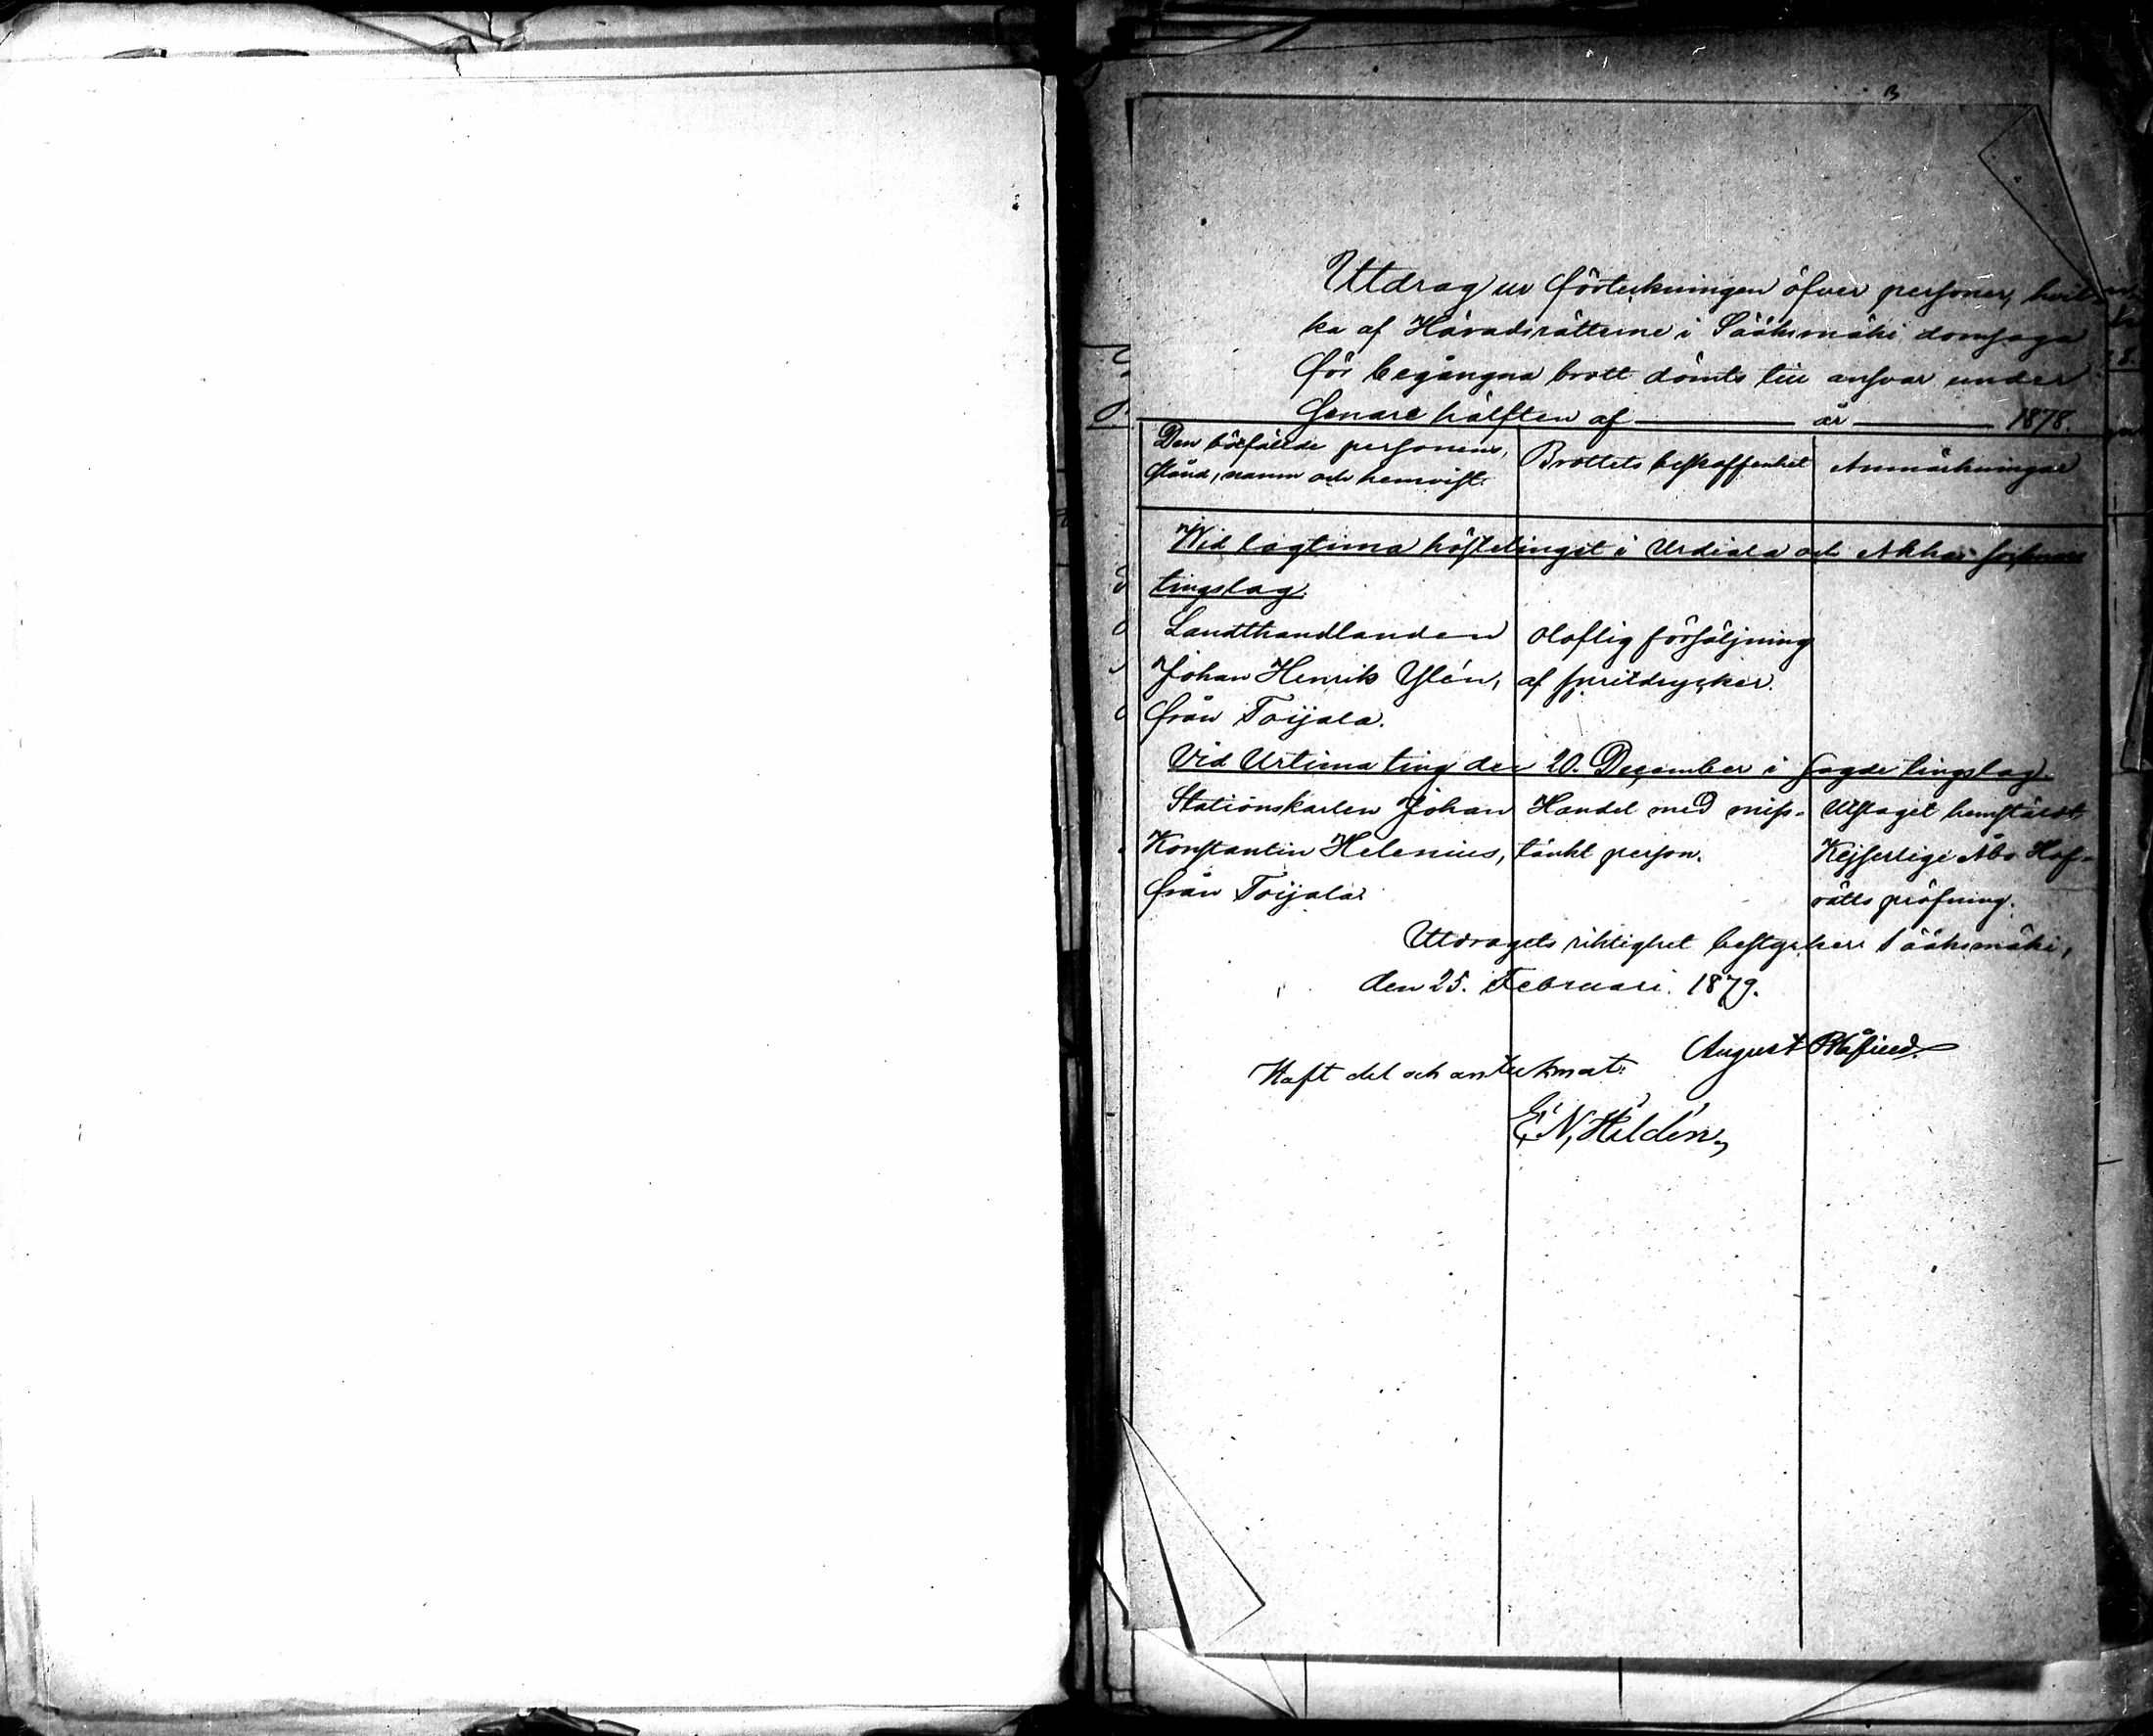 Utdrag ur förteckningen öfver personer, hvil-
ka af Häradsrätterne i Sääksmäki domsaga
för begångna brott dömts till ansvar under
senare hälften af — år — 1878.
Den bötfällde personens, stånd, namn och hemvist. Brottets beskaffenhet Anmärkningar
Wid lagtima höstetinget i Urdiala och Akkas socknars
tingslag.
Landthandlanden olaflig försäljning
Johan Henrik Ylén, af spritdrycker.
från Toijala.
Vid Urtima ting den 20. December i sagde tingslag.
Stationskarlen Johan Handel med miss- Utslaget hemstäldt
Konstantin Helenius, tänkt person. Kejserlige Åbo Hof-
från Toijala. rätts pröfning.
Utdragets riktighet bestyrker: Sääksmäki,
den 25. Februari. 1879.
August
Haft del och antecknat:
E. N. Hildén,